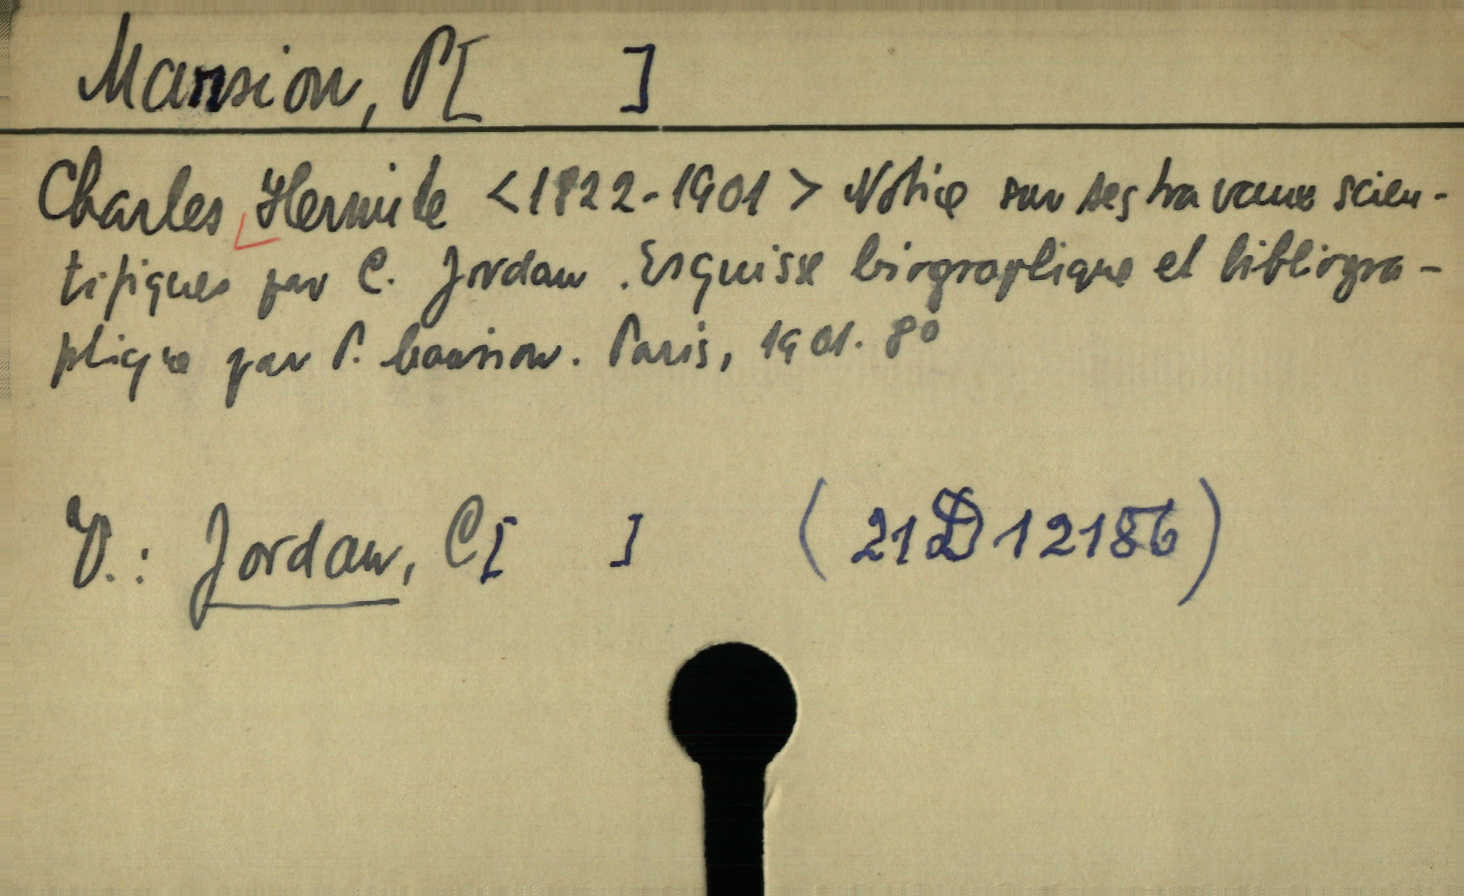 Mansion, P[ ]
Charles Hermite <1822-1901> Notice sur ses travaux scien-
tifiques par C. Jordan. Esquisse biographique et bibliogra-
phique par P. Mansion. Paris, 1901. 8°
V.: Jordan, C[ ] (21 D 12186)